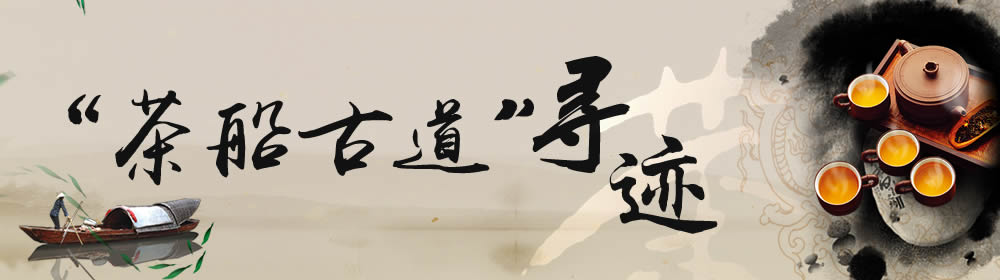 “茶船古道”寻迹